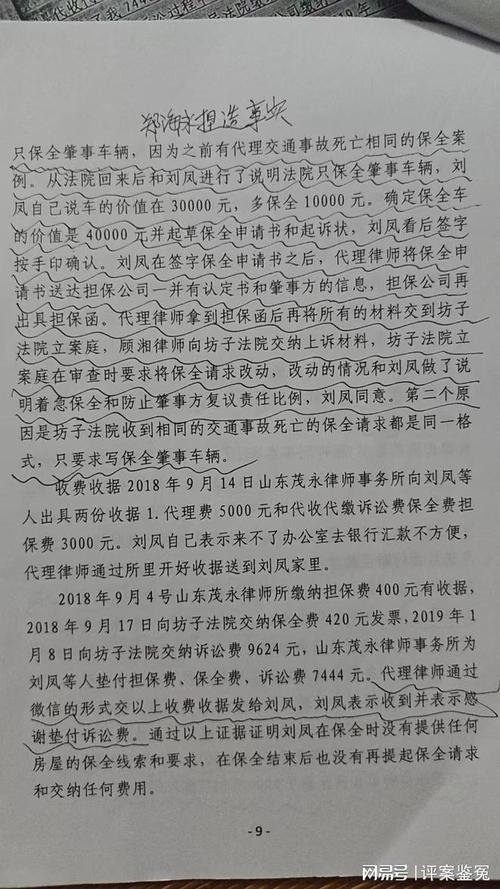 郑海永捏造事实
只保全肇事车辆，因为之前有代理交通事故死亡相同的保全案
例。从法院回来后和刘凤进行了说明法院只保全肇事车辆，刘
凤自己说车的价值在 30000 元，多保全 10000 元。确定保全车
的价值是 40000 元并起草保全申请书和起诉状，刘凤看后签字
按手印确认。刘凤在签字保全申请书之后，代理律师将保全申
请书送达担保公司一并有认定书和肇事方的信息，担保公司再
出具担保函。代理律师拿到担保函后再将所有的材料交到坊子
法院立案庭，顾湘律师向坊子法院交纳上诉材料，坊子法院立
案庭在审查时要求将保全请求改动，改动的情况和刘凤做了说
明着急保全和防止肇事方复议责任比例，刘凤同意。第二个原
因是坊子法院收到相同的交通事故死亡的保全请求都是同一格
式，只要求写保全肇事车辆。
收费收据 2018 年 9 月 14 日山东茂永律师事务所向刘凤等
人出具两份收据 1.代理费 5000 元和代收代缴诉讼费保全费担
保费 3000 元。刘凤自己表示来不了办公室去银行汇款不方便，
代理律师通过所里开好收据送到刘凤家里。
2018 年 9 月 4 号山东茂永律师所缴纳担保费 400 元有收据，
2018 年 9 月 17 日向坊子法院交纳保全费 420 元发票，2019 年 1
月 8 日向坊子法院交纳诉讼费 9624 元，山东茂永律师事务所为
刘凤等人垫付担保费、保全费、诉讼费 7444 元。代理律师通过
微信的形式交以上收费收据发给刘凤，刘凤表示收到并表示感
谢垫付诉讼费。通过以上证据证明刘凤在保全时没有提供任何
房屋的保全线索和要求，在保全结束后也没有再提起保全请求
和交纳任何费用。
- 9 -
网易号 | 评案鉴冤